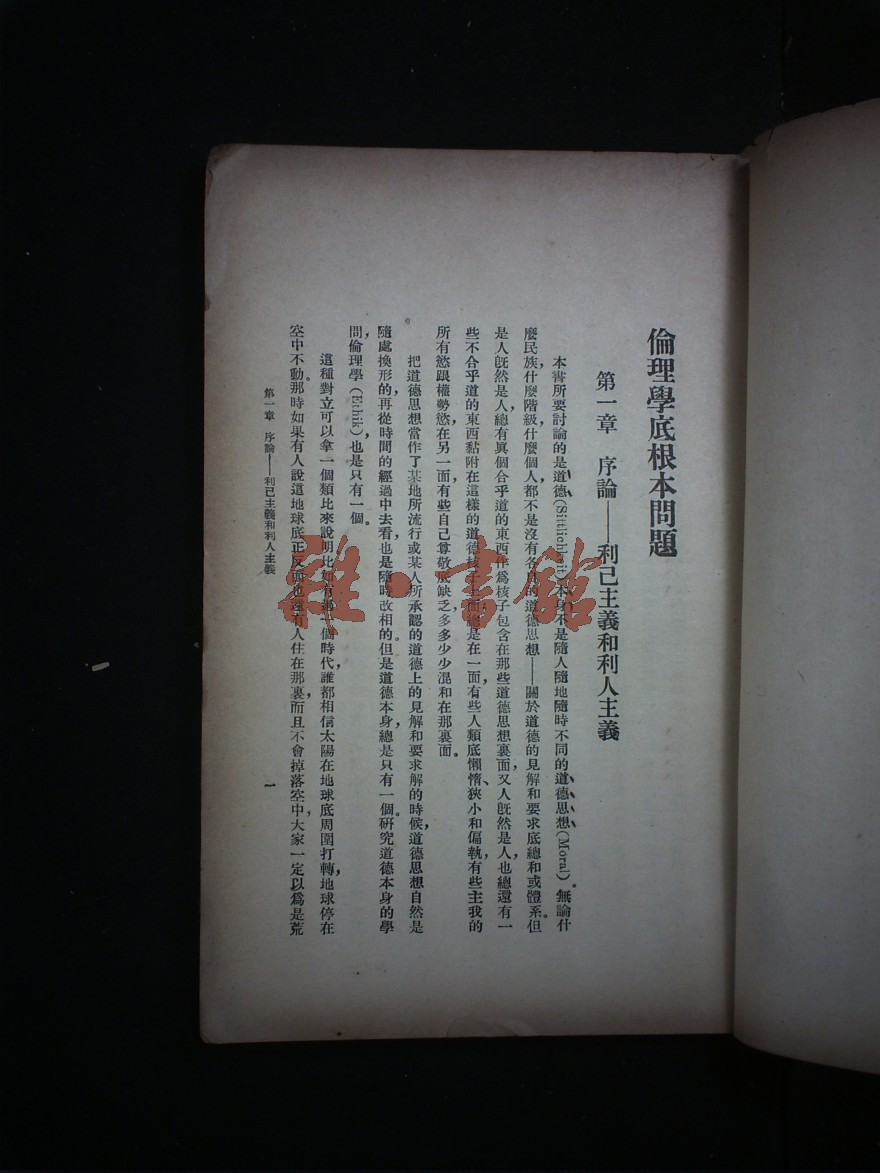 倫理學底根本問題
第一章 序論——利己主義和利人主義
本書所要討論的是道德(Sittlichkeit)本身不是隨人隨地隨時不同的道德思想(Moral)。無論什
麼民族，什麼階級什麼個人，都不是沒有各自的道德思想——關於道德的見解和要求底總和或體系。但
是人旣然是人，總有眞個合乎道的東西作爲核子包含在那些道德思想裏面，又人旣然是人，也總還有一
些不合乎道的東西黏附在這樣的道德核子上面總是在一面，有些人類底懶惰、狹小和偏執，有些主我的
所有慾跟權勢慾，在另一面，有些自己尊敬底缺乏，多多少少混和在那裏面。
把道德思想當作了某地所流行或某人所承認的道德上的見解和要求解的時候，道德思想自然是
隨處換形的，再從時間的經過中去看，也是隨時改相的。但是道德本身，總是只有一個。研究道德本身的學
問，倫理學(Ethik)，也是只有一個。
這種對立可以拿一個類比來說明比如有過一個時代，誰都相信太陽在地球底周圍打轉，地球停在
空中不動。那時如果有人說這地球底正反面也還有人住在那裏，而且不會掉落空中，大家一定以爲是荒
第一章 序論——利己主義和利人主義
一
雜·書館